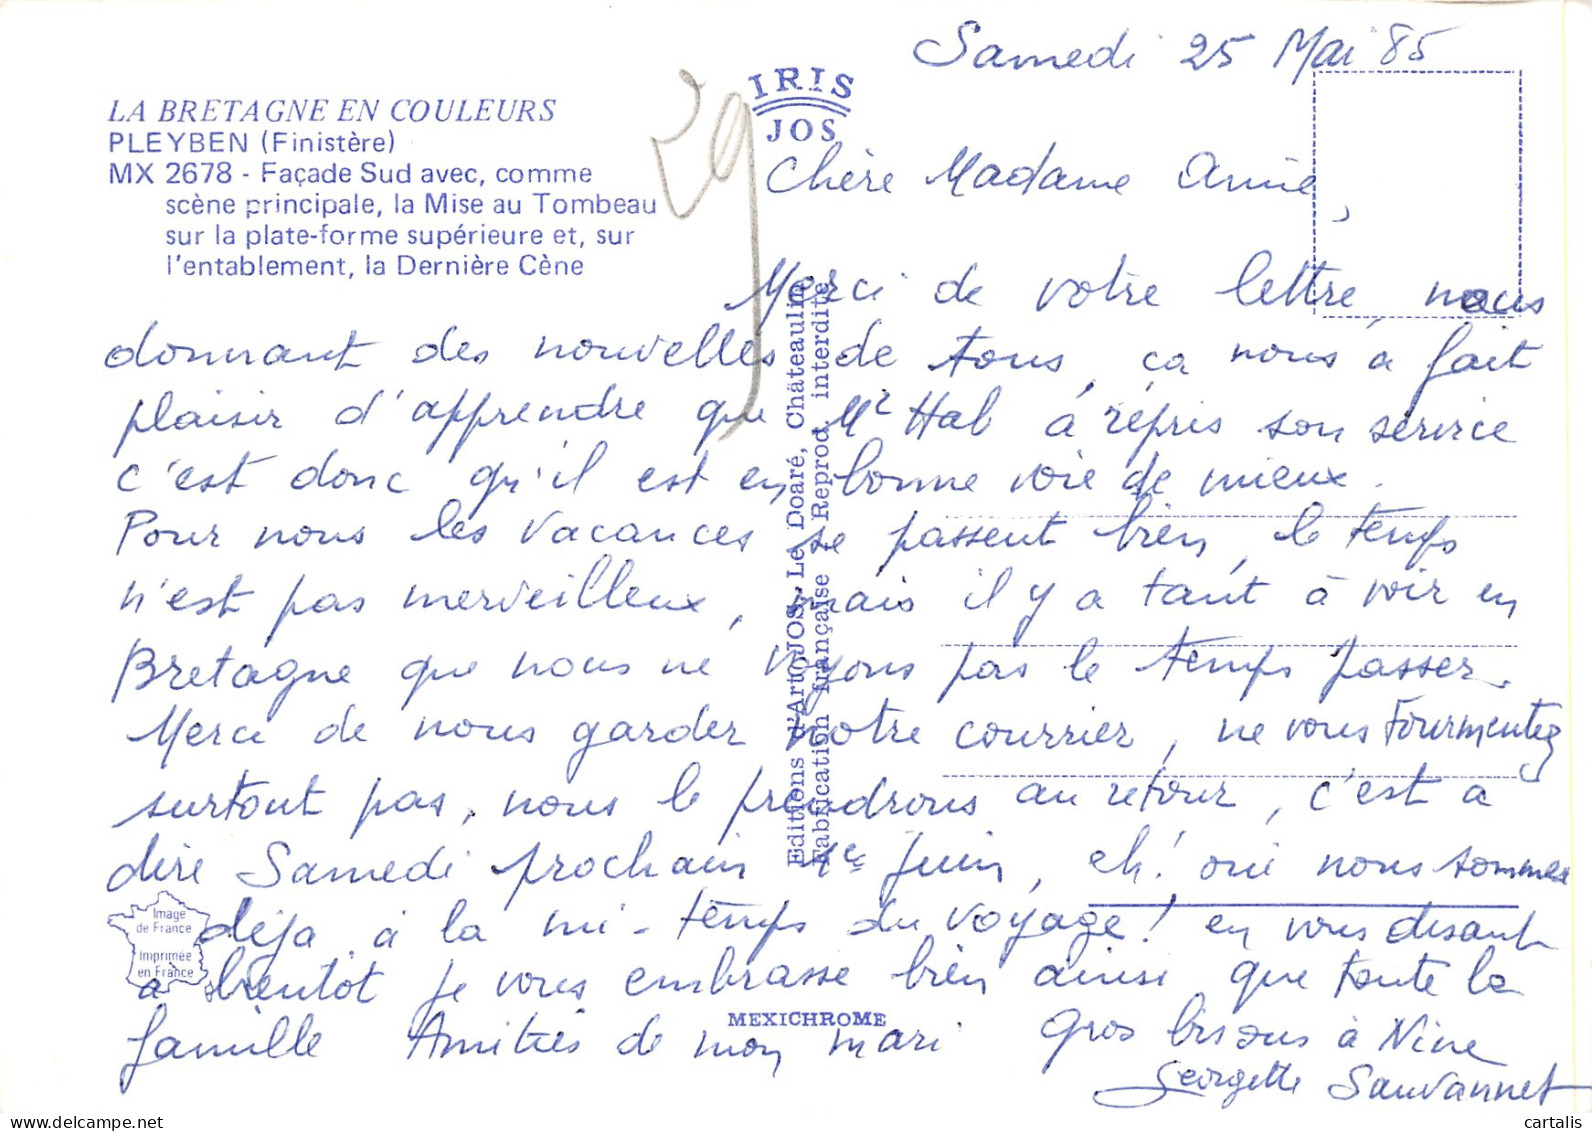 Samedi 25 Mai 85
LA BRETAGNE EN COULEURS
PLEYBEN (Finistère)
MX 2678 - Façade Sud avec, comme
scène principale, la Mise au Tombeau
sur la plate-forme supérieure et, sur
l'entablement, la Dernière Cène
29
IRIS
JOS
Chère Madame Anie,
Merci de votre lettre, nous
donnant des nouvelles de tous, ça nous a fait
plaisir d'apprendre que Mr Hal à répris son service
c'est donc qu'il est en bonne voie de mieux.
Pour nous les vacances se passent bien, le temps
n'est pas merveilleux, mais il y a tant à voir en
Bretagne que nous ne voyons pas le temps passer.
Merci de nous garder notre courrier, ne vous tourmentez
surtout pas, nous le prendrons au retour, c'est a
dire Samedi prochain 1er Juin, eh! oui nous sommes
déja à la mi-temps du voyage! en vous disant
a bientôt je vous embrasse bien ainsi que toute la
famille Amitiés de mon mari Gros bisous à Nine
Georgette Sauvannet
Editions d'Art JOS, Le Doaré, Châteaulin
Fabrication française - Reprod. interdite
Image
de France
Imprimée
en France
MEXICHROME
cartalis